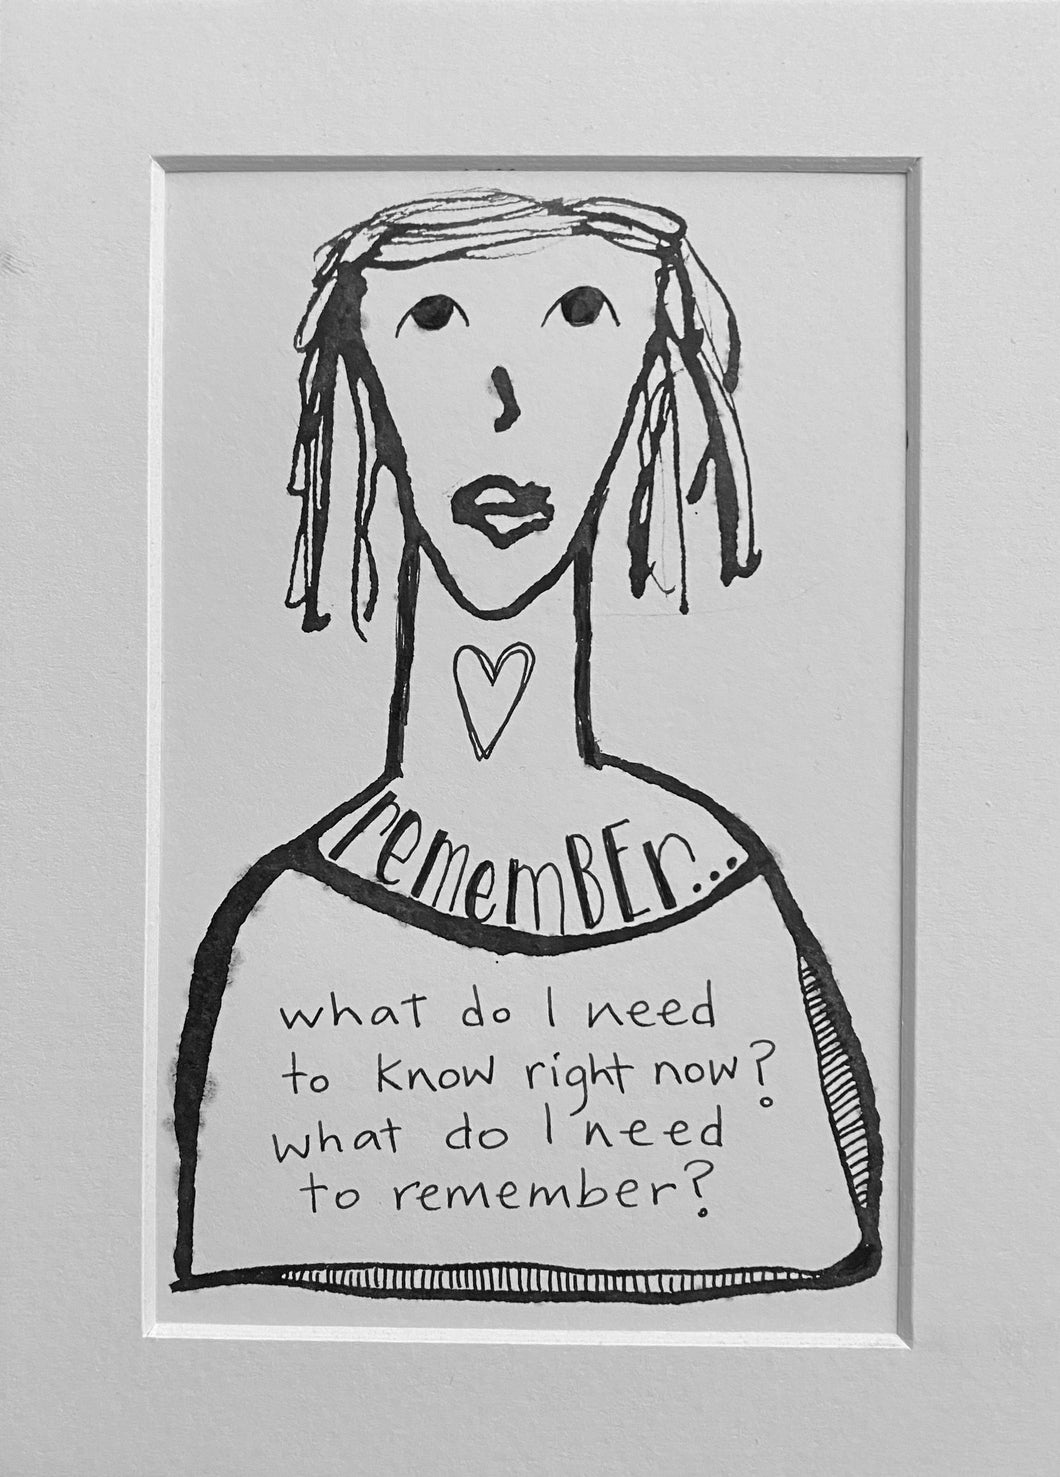 remember...
what do I need
to know right now?
what do I need
to remember?